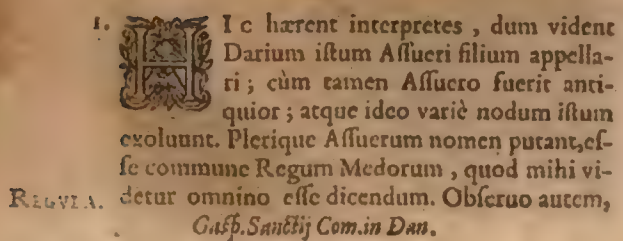 1. HIc hærent interpretes, dum vident
Darium iſtum Aſſueri filium appella-
ri; cùm tamen Aſſuero fuerit anti-
quior; atque ideo variè nodum iſtum
exoluunt. Plerique Aſſuerum nomen putant, eſ-
ſe commune Regum Medorum, quod mihi vi-
REGVLA. detur omnino eſſe dicendum. Obſeruo autem,
Gaſp. Sanctij Com. in Dan.